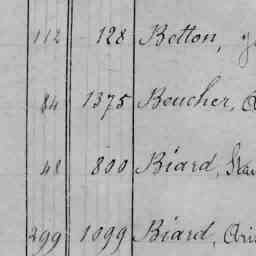 112 128 Betton,
84 1375 Boucher,
48 800 Biard,
299 1099 Biard,